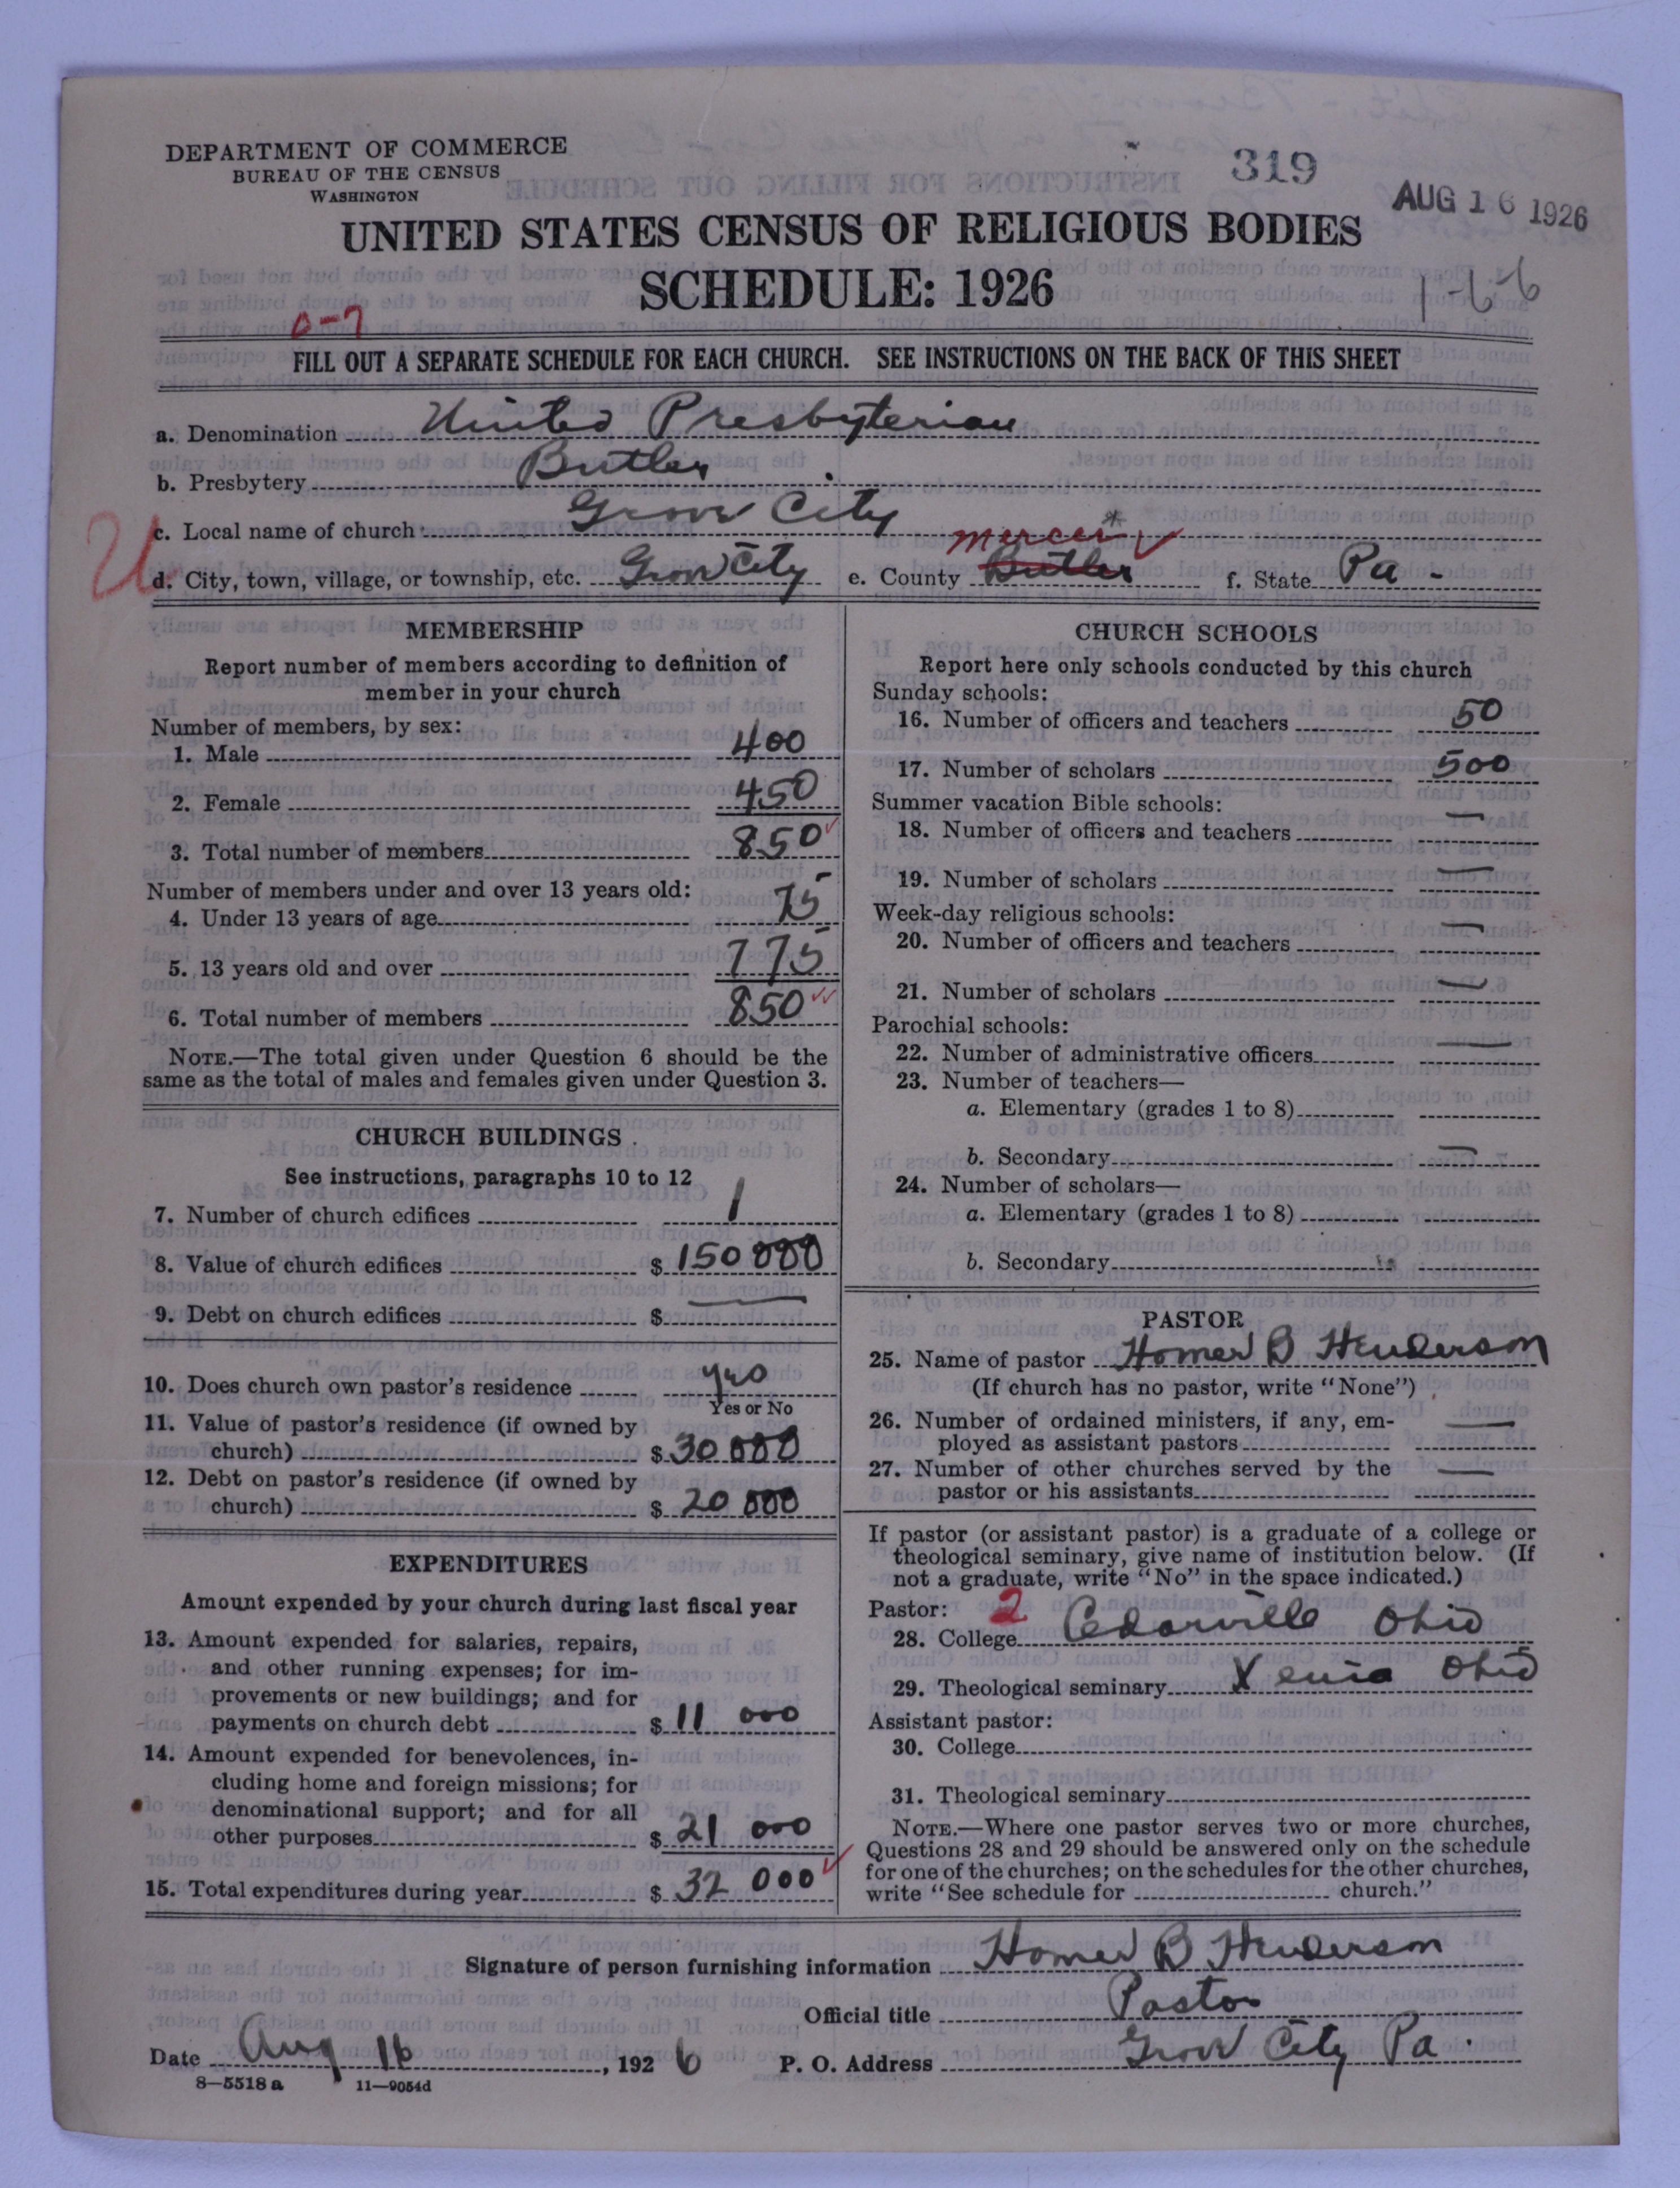 DEPARTMENT OF COMMERCE
BUREAU OF THE CENSUS
WASHINGTON
319
AUG 16 1926
UNITED STATES CENSUS OF RELIGIOUS BODIES
SCHEDULE: 1926
1-6-6
0-7
FILL OUT A SEPARATE SCHEDULE FOR EACH CHURCH. SEE INSTRUCTIONS ON THE BACK OF THIS SHEET
a. Denomination United Presbyterian
b. Presbytery Butler
c. Local name of church Grove City
mercer *
d. City, town, village, or township, etc. Grove City e. County Butler f. State Pa.
MEMBERSHIP
Report number of members according to definition of
member in your church
Number of members, by sex:
1. Male 400
2. Female 450
3. Total number of members 850
Number of members under and over 13 years old:
4. Under 13 years of age 75
5. 13 years old and over 775
6. Total number of members 850
NOTE.—The total given under Question 6 should be the
same as the total of males and females given under Question 3.
CHURCH BUILDINGS
See instructions, paragraphs 10 to 12
7. Number of church edifices 1
8. Value of church edifices $ 150 000
9. Debt on church edifices $ —
10. Does church own pastor's residence yes
Yes or No
11. Value of pastor's residence (if owned by
church) $ 30 000
12. Debt on pastor's residence (if owned by
church) $ 20 000
EXPENDITURES
Amount expended by your church during last fiscal year
13. Amount expended for salaries, repairs,
and other running expenses; for im-
provements or new buildings; and for
payments on church debt $ 11 000
14. Amount expended for benevolences, in-
cluding home and foreign missions; for
denominational support; and for all
other purposes $ 21 000
15. Total expenditures during year $ 32 000
CHURCH SCHOOLS
Report here only schools conducted by this church
Sunday schools:
16. Number of officers and teachers 50
17. Number of scholars 500
Summer vacation Bible schools:
18. Number of officers and teachers —
19. Number of scholars —
Week-day religious schools:
20. Number of officers and teachers —
21. Number of scholars —
Parochial schools:
22. Number of administrative officers —
23. Number of teachers—
a. Elementary (grades 1 to 8)
b. Secondary —
24. Number of scholars—
a. Elementary (grades 1 to 8)
b. Secondary
PASTOR
25. Name of pastor Homer B Henderson
(If church has no pastor, write "None")
26. Number of ordained ministers, if any, em-
ployed as assistant pastors —
27. Number of other churches served by the
pastor or his assistants —
If pastor (or assistant pastor) is a graduate of a college or
theological seminary, give name of institution below. (If
not a graduate, write "No" in the space indicated.)
Pastor: 2
28. College Cedarville Ohio
29. Theological seminary Xenia Ohio
Assistant pastor:
30. College
31. Theological seminary
NOTE.—Where one pastor serves two or more churches,
Questions 28 and 29 should be answered only on the schedule
for one of the churches; on the schedules for the other churches,
write "See schedule for church."
Signature of person furnishing information Homer B Henderson
Official title Pastor
Date Aug 16, 1926 P. O. Address Grove City Pa.
8—5518 a 11—9054d